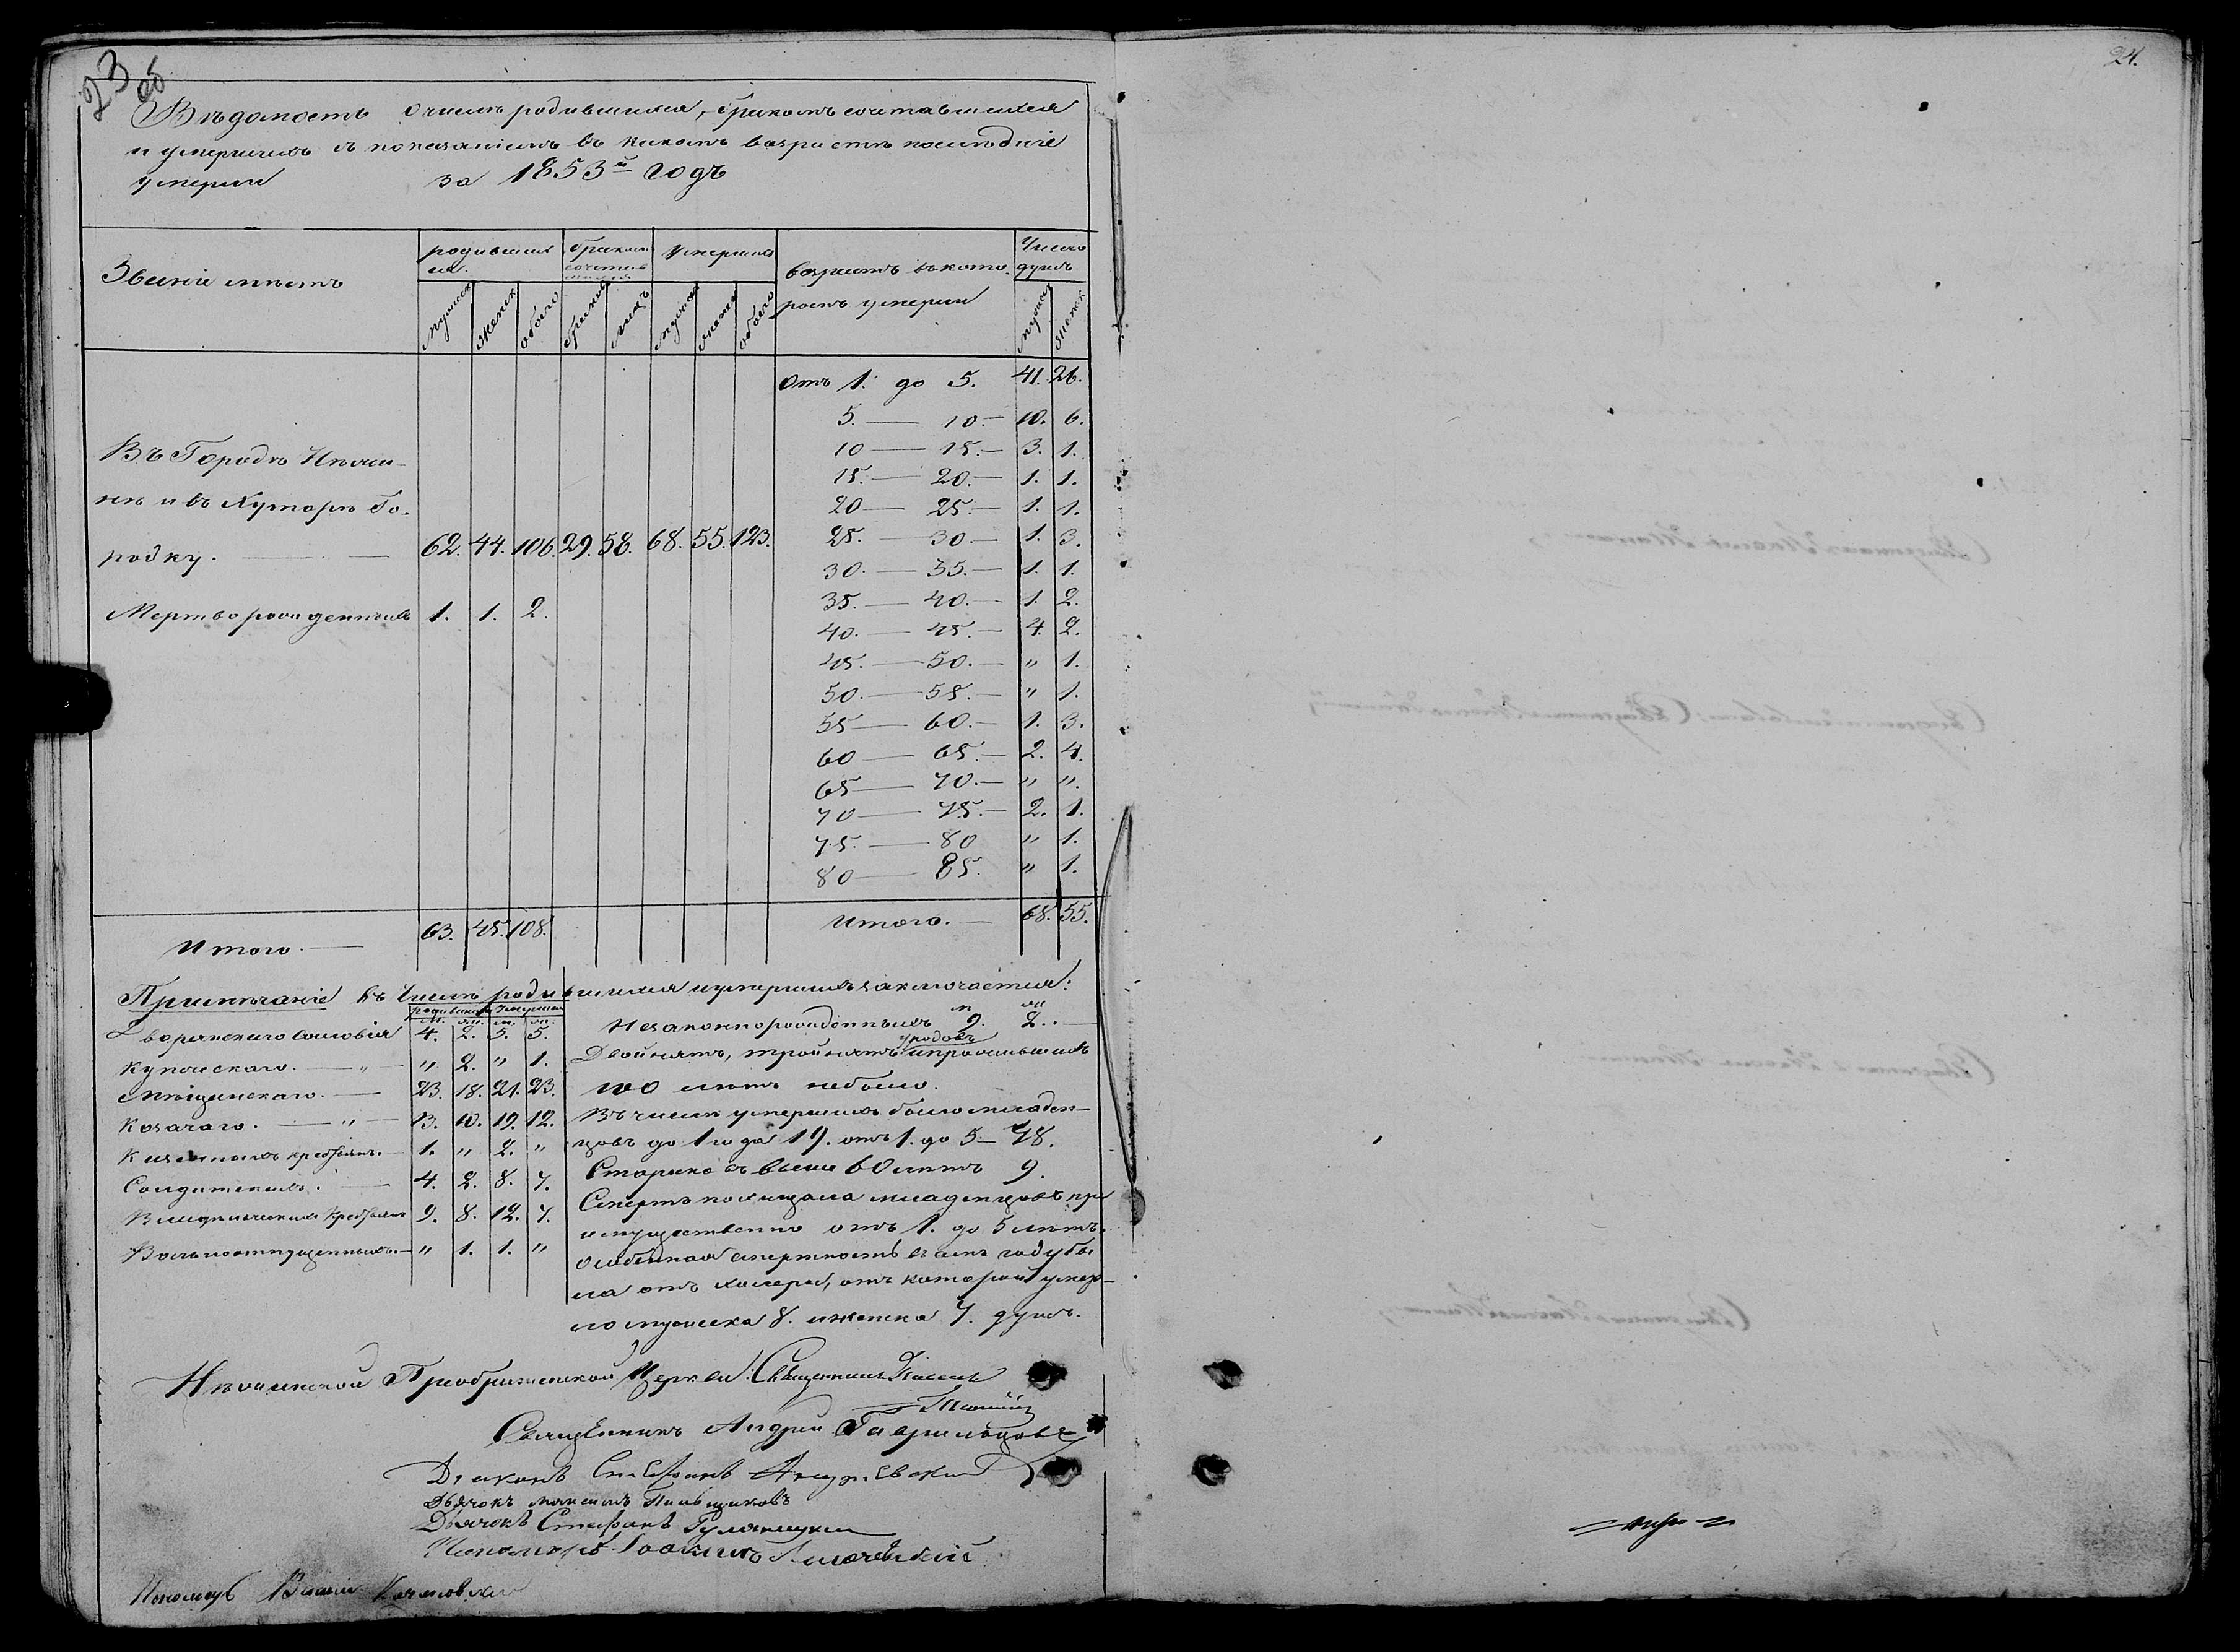 23
об
24.
Вѣдомость о числѣ родившихся, бракомъ сочетавшихся
и умершихъ съ показаніемъ въ какомъ возрастѣ послѣдніе
умерли за 1853й годъ
Званіе мѣстъ
родивших
ся.
бракомъ
сочетав
шихся
умерших
возрастъ въ кото
ромъ умерли
Число
душъ
мужеск
женск
обоего
браковъ
лицъ
мужеск
женск
обоего
мужеск
женск
отъ 1. до 5. 41. 26.
5. — 10. — 10. 6.
10 — 15. — 3. 1.
15. — 20. — 1. 1.
20 — 25. — 1. 1.
25. — 30 — 1. 3.
30. — 35. — 1. 1.
35. — 40. — 1. 2.
40. — 45. — 4. 2.
45. — 50. — " 1.
50. — 55. — " 1.
55 — 60. — 1. 3.
60 — 65. — 2. 4.
65 — 70. — " ".
70 — 75. — 2. 1.
75. — 80 " 1.
80 — 85. " 1.
Въ Городѣ Нѣжи-
нѣ и въ Хуторѣ Го-
родку. — 62. 44. 106. 29. 58. 68. 55. 123.
Мертворожденныхъ 1. 1. 2.
Итого. — 63. 45. 108.
Итого. — 68. 55.
Примѣчаніе Въ числѣ родившихся и умершихъ заключается:
родивших умерших
м. ж. м. ж.
Дворянскаго сословія 4. 2. 5. 5.
Купческаго. — " — " 2. " 1.
Мѣщанскаго. — 23. 18. 21. 23.
Козачаго. — " — 13. 10. 19. 12.
Казенныхъ крестьянъ. — 1. " 2. "
Солдатскихъ. — 4. 2. 8. 7.
Владѣльческихъ крестьянъ 9. 8. 12. 7.
Вольноотпущенныхъ. — " 1. 1. "
м ж
Незаконнорожденныхъ 9. 2. —
уродовъ
Двойнятъ, тройнятъ и прожившихъ
100 лѣтъ небыло.
Въ числѣ умершихъ было младен-
цовъ до 1 года 19. отъ 1. до 5 — 48.
Стариковъ выше 60 лѣтъ 9.
Смерть похищала младенцовъ пре
имущественно отъ 1. до 5 лѣтъ.
Особенная смертность въ семъ году бы
ла отъ холеры, отъ которой умер-
ло мужеска 8. и женска 7. душъ.
Нѣжинской Преображенской Церкви: Священникъ
Священникъ Андрей
Діаконъ Стефанъ
Дьячокъ Максимъ
Дьячокъ Стефанъ
Пономарь Іоакимъ
Пономарь